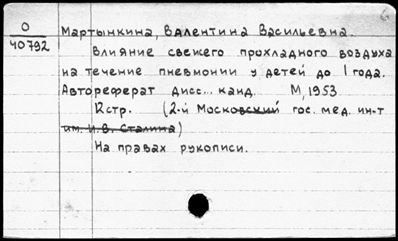 О
40792
Мартынкина, Валентина Васильевна.
Влияние свежего прохладного воздуха
на течение пневмонии у детей до 1 года.
Автореферат дисс... канд. М, 1953
12 стр. (2-й Московский гос. мед. ин-т
им. И.В. Сталина)
На правах рукописи.